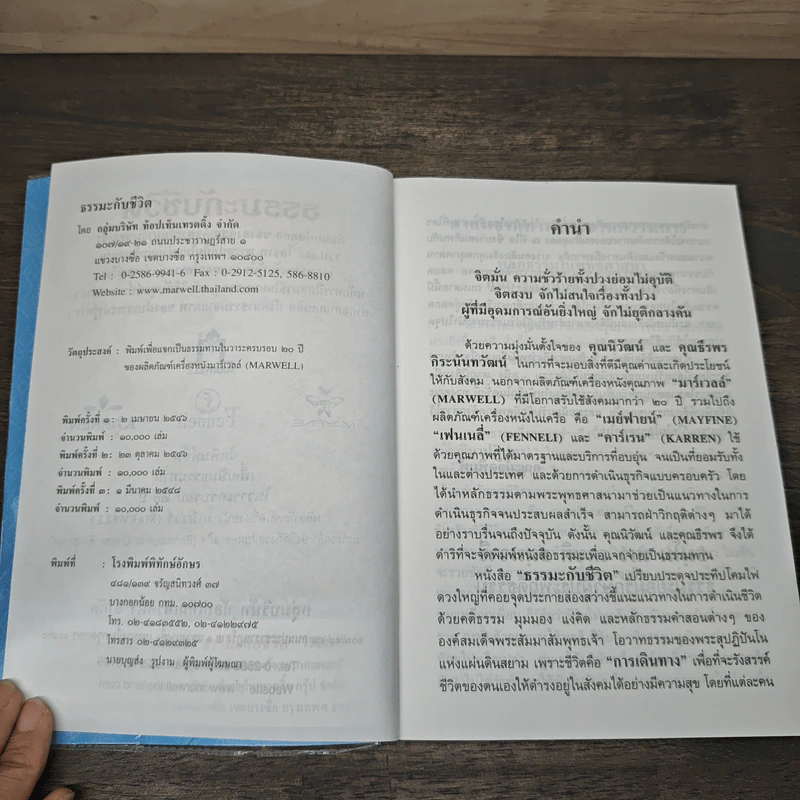 ธรรมะกับชีวิต
โดย กลุ่มบริษัท ท้อปเท็นเทรดดิ้ง จำกัด
๑๐๗/๑๙-๒๑ ถนนประชาราษฎร์สาย ๑
แขวงบางซื่อ เขตบางซื่อ กรุงเทพฯ ๑๐๘๐๐
Tel : 0-2586-9941-6 Fax : 0-2912-5125, 586-8810
Website : www.marwell.thailand.com
วัตถุประสงค์ : พิมพ์เพื่อแจกเป็นธรรมทานในวาระครบรอบ ๒๐ ปี
ของผลิตภัณฑ์เครื่องหนังมาร์เวลล์ (MARWELL)
พิมพ์ครั้งที่ ๑ : ๒ เมษายน ๒๕๔๖
จำนวนพิมพ์ : ๑๐,๐๐๐ เล่ม
พิมพ์ครั้งที่ ๒ : ๒๓ ตุลาคม ๒๕๔๖
จำนวนพิมพ์ : ๑๐,๐๐๐ เล่ม
พิมพ์ครั้งที่ ๓ : ๑ มีนาคม ๒๕๔๘
จำนวนพิมพ์ : ๑๐,๐๐๐ เล่ม
พิมพ์ที่ : โรงพิมพ์พิทักษ์อักษร
๔๘๑/๑๓๙ จรัญสนิทวงศ์ ๓๗
บางกอกน้อย กทม. ๑๐๗๐๐
โทร. ๐๒-๔๑๘๓๕๕๒, ๐๒-๔๑๒๒๘๗๕
โทรสาร ๐๒-๔๑๒๙๓๒๕
นายบุญส่ง รูปงาม ผู้พิมพ์ผู้โฆษณา
คำนำ
จิตมั่น ความชั่วร้ายทั้งปวงย่อมไม่อุบัติ
จิตสงบ จักไม่สนใจเรื่องทั้งปวง
ผู้ที่มีอุดมการณ์อันยิ่งใหญ่ จักไม่ยุติกลางคัน
ด้วยความมุ่งมั่นตั้งใจของ คุณนิวัฒน์ และ คุณธีรพร
กิระนันทวัฒน์ ในการที่จะมอบสิ่งที่ดีมีคุณค่าและเกิดประโยชน์
ให้กับสังคม นอกจากผลิตภัณฑ์เครื่องหนังคุณภาพ "มาร์เวลล์"
(MARWELL) ที่มีโอกาสรับใช้สังคมมากว่า ๒๐ ปี รวมไปถึง
ผลิตภัณฑ์เครื่องหนังในเครือ คือ "เมย์ฟายน์" (MAYFINE)
"เฟนเนลี่" (FENNELI) และ "คาร์เรน" (KARREN) ใช้
ด้วยคุณภาพที่ได้มาตรฐานและบริการที่อบอุ่น จนเป็นที่ยอมรับทั้ง
ในและต่างประเทศ และด้วยการดำเนินธุรกิจแบบครอบครัว โดย
ได้นำหลักธรรมตามพระพุทธศาสนามาช่วยเป็นแนวทางในการ
ดำเนินธุรกิจจนประสบผลสำเร็จ สามารถฝ่าวิกฤติต่างๆ มาได้
อย่างราบรื่นจนถึงปัจจุบัน ดังนั้น คุณนิวัฒน์ และคุณธีรพร จึงได้
ดำริที่จะจัดพิมพ์หนังสือธรรมะเพื่อแจกจ่ายเป็นธรรมทาน
หนังสือ "ธรรมะกับชีวิต" เปรียบประดุจประทีปโคมไฟ
ดวงใหญ่ที่คอยจุดประกายส่องสว่างชี้แนะแนวทางในการดำเนินชีวิต
ด้วยคติธรรม มุมมอง แง่คิด และหลักธรรมคำสอนต่างๆ ของ
องค์สมเด็จพระสัมมาสัมพุทธเจ้า โอวาทธรรมของพระสุปฏิปันโน
แห่งแผ่นดินสยาม เพราะชีวิตคือ "การเดินทาง" เพื่อที่จะรังสรรค์
ชีวิตของตนเองให้ดำรงอยู่ในสังคมได้อย่างมีความสุข โดยที่แต่ละคน